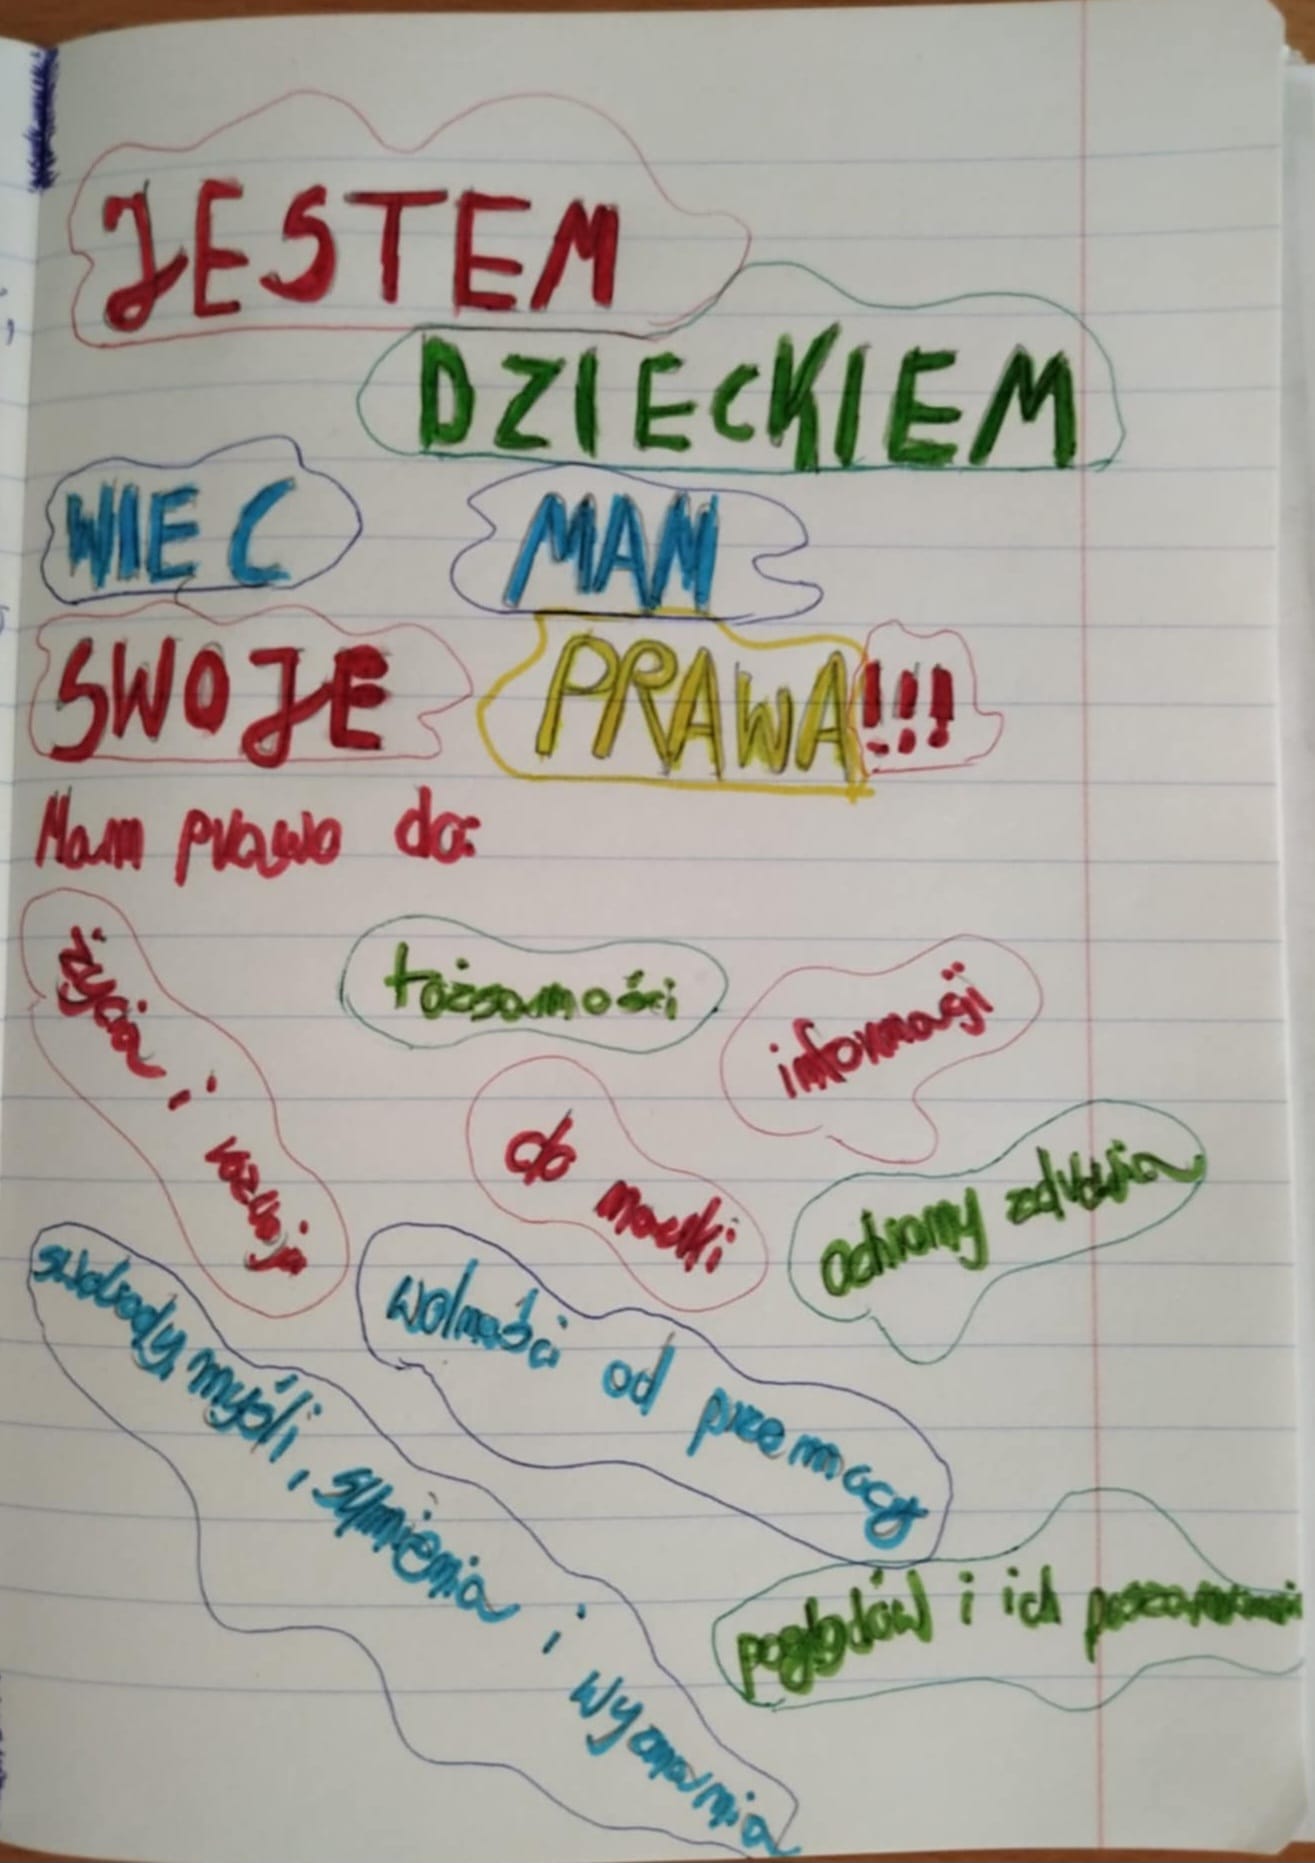 JESTEM
DZIECKIEM
WIEC MAM
SWOJE PRAWA!!!
Mam prawo do:
życia i rozwoju
tożsamości
informacji
do nauki
ochrony zdrowia
wolności od przemocy
swobody myśli, sumienia i wyznania
poglądów i ich poszanowania